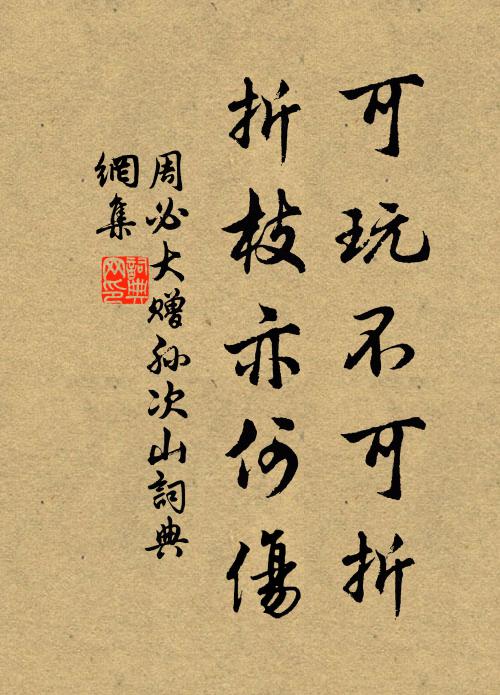 可玩不可折
折枝亦何傷
周必大贈孫次山詞典
網集
詞典網印